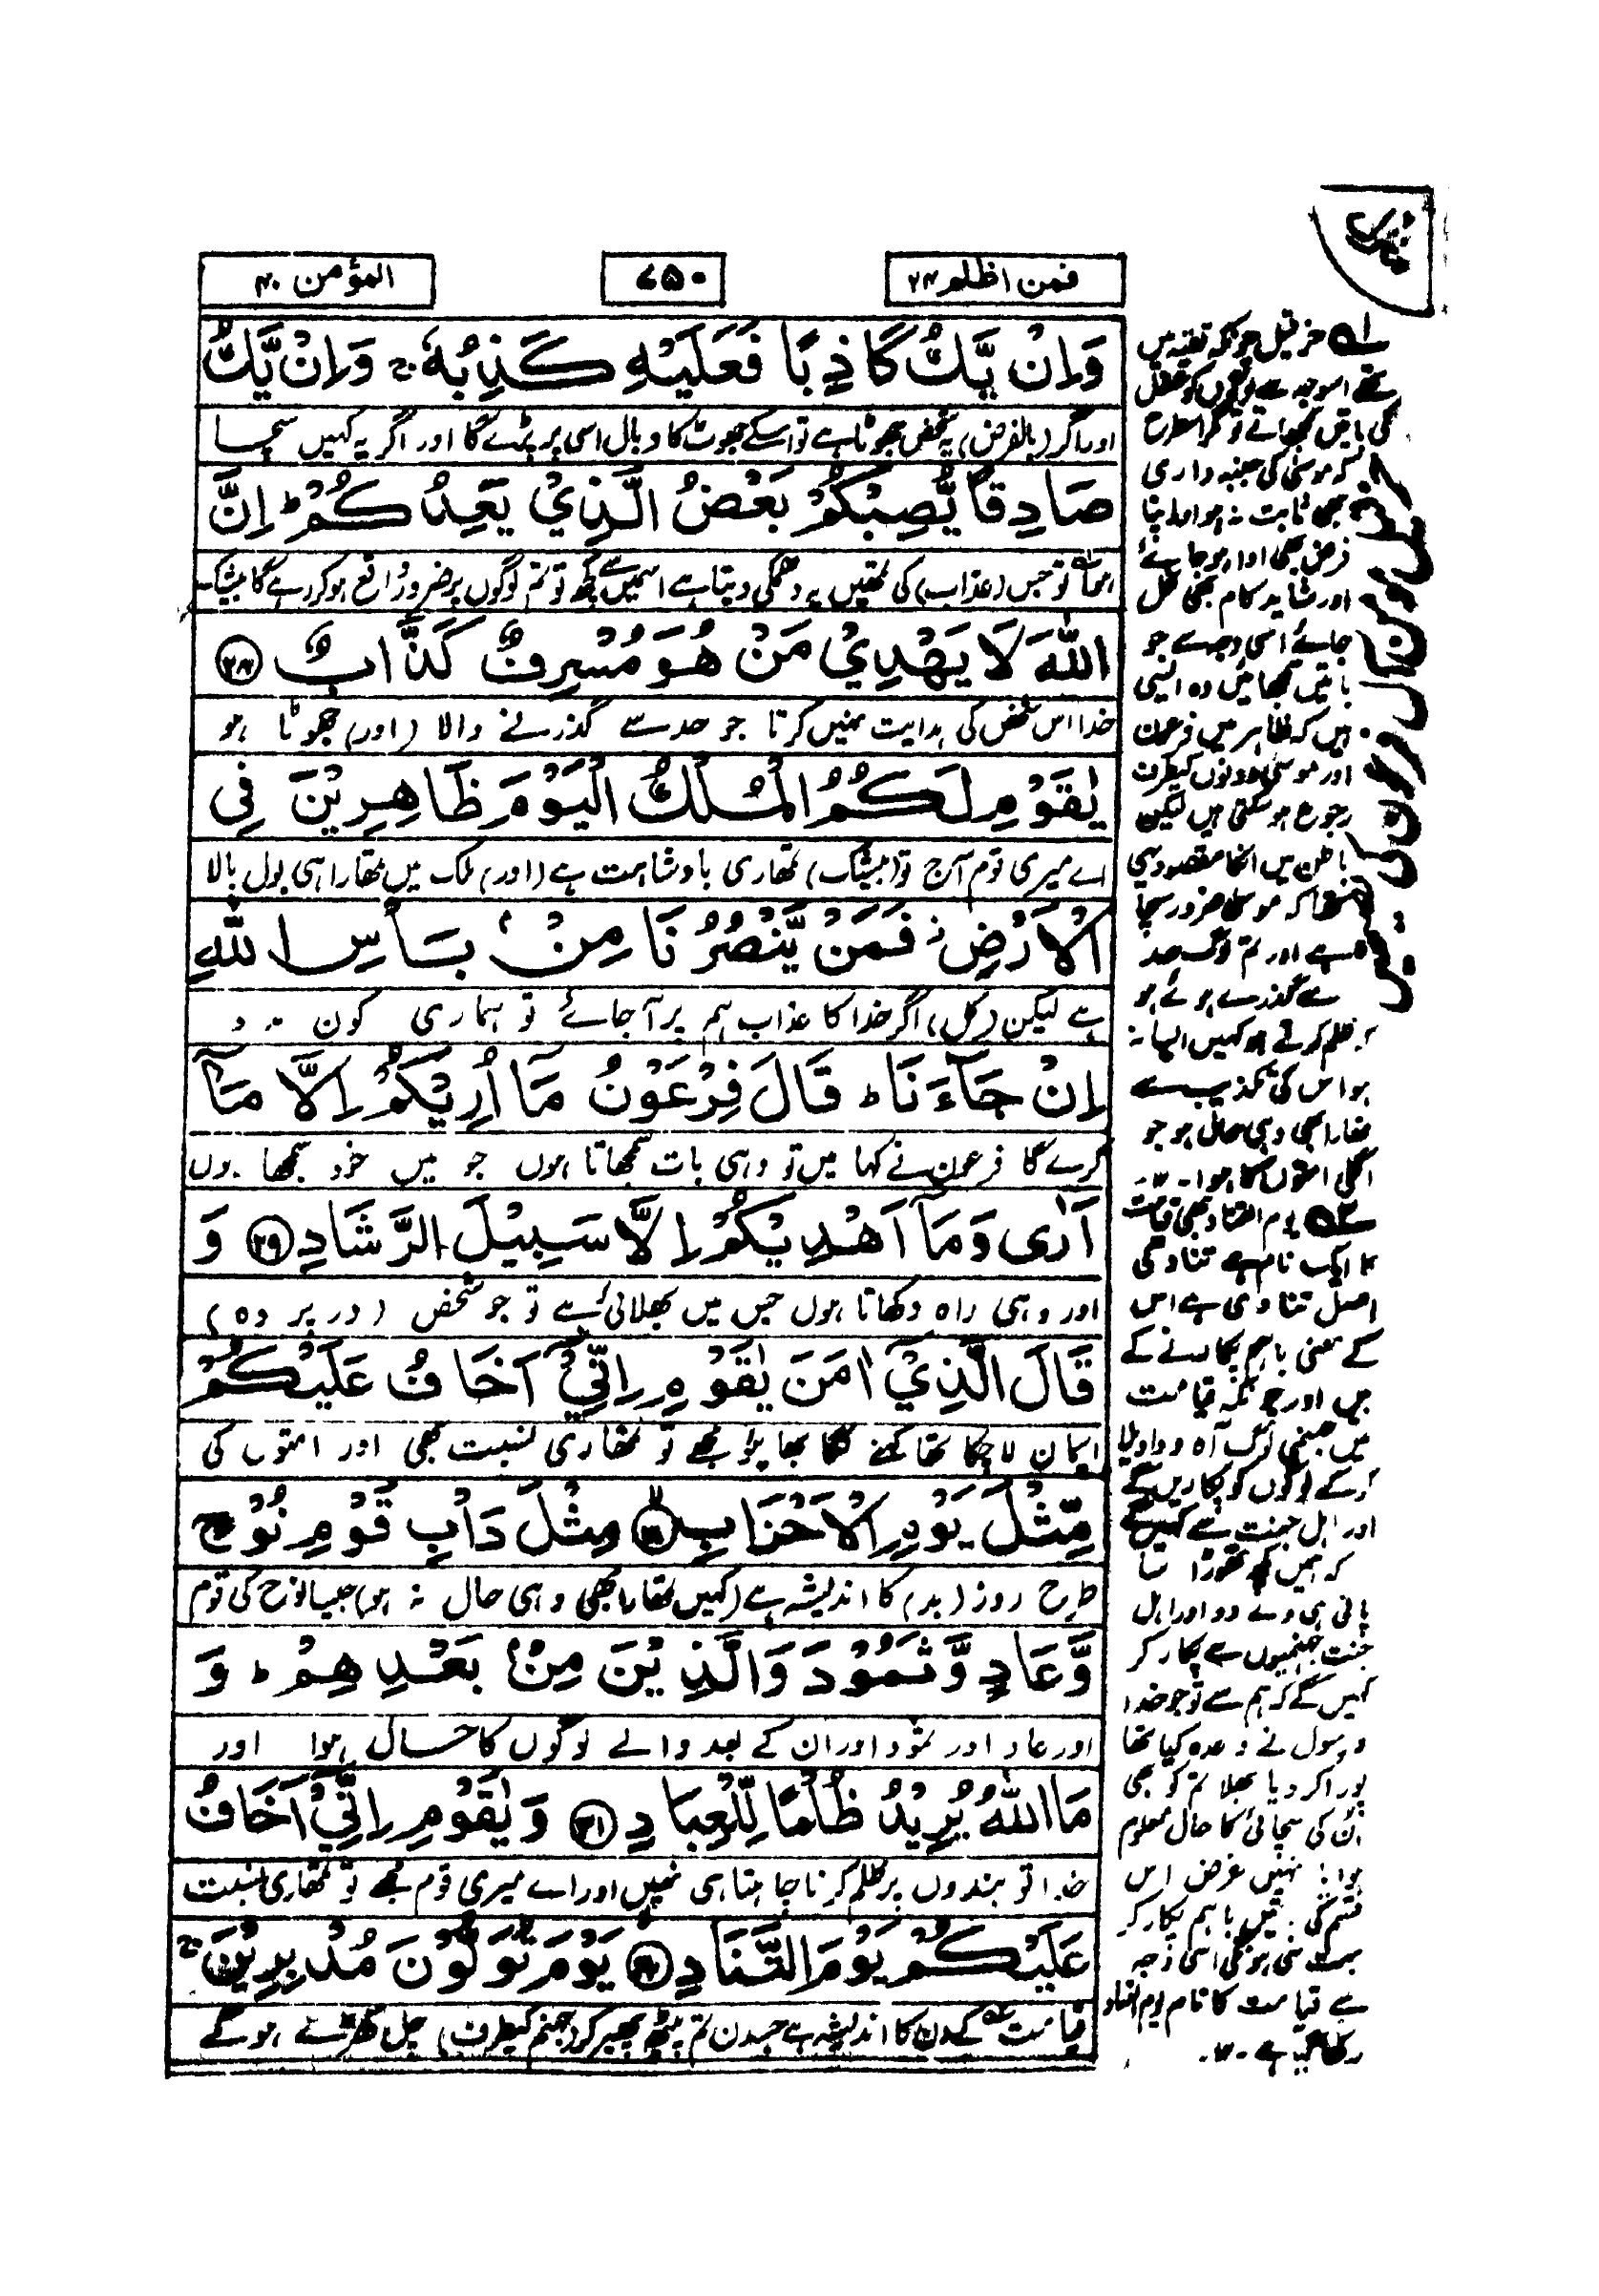 فمن اظلم ۲۴
۷۵۰
المؤمن ۴۰
وَاِنْ يَّكُ كَاذِبًا فَعَلَيْهِ كَذِبُهٗ ج وَاِنْ يَّكُ
اور اگر (بالفرض) یہ شخص جھوٹا ہے تو اسکے جھوٹ کا وبال اسی پر پڑے گا اور اگر یہ کہیں سچا
صَادِقًا يُّصِبْكُمْ بَعْضُ الَّذِيْ يَعِدُكُمْ ط اِنَّ
ہوا تو جس (عذاب) کی تمھیں یہ دھمکی دیتا ہے اسمیں سے کچھ تو تم لوگوں پر ضرور واقع ہوکر رہے گا بیشک
اللّٰهَ لَا يَهْدِيْ مَنْ هُوَ مُسْرِفٌ كَذَّابٌ ۲۸
خدا اس شخص کی ہدایت نہیں کرتا جو حد سے گذرنے والا (اور) جھوٹا ہو
يٰقَوْمِ لَكُمُ الْمُلْكُ الْيَوْمَ ظَاهِرِيْنَ فِي
اے میری قوم آج تو (بیشک) تمھاری بادشاہت ہے (اور) ملک میں تمھارا ہی بول بالا
الْاَرْضِ ز فَمَنْ يَّنْصُرُنَا مِنْۢ بَاْسِ اللّٰهِ
ہے لیکن (کل) اگر خدا کا عذاب ہم پر آجائے تو ہماری کون
اِنْ جَآءَنَا ط قَالَ فِرْعَوْنُ مَآ اُرِيْكُمْ اِلَّا مَآ
کرے گا فرعون نے کہا میں تو وہی بات سمجھاتا ہوں جو میں خود سمجھا ہوں
اَرٰى وَمَآ اَهْدِيْكُمْ اِلَّا سَبِيْلَ الرَّشَادِ ۲۹ وَ
اور وہی راہ دکھاتا ہوں جس میں بھلائی ہے تو جو شخص (در پردہ)
قَالَ الَّذِيْٓ اٰمَنَ يٰقَوْمِ اِنِّيْٓ اَخَافُ عَلَيْكُمْ
ایمان لاچکا تھا کہنے لگا بھائیو مجھے تو تمھاری نسبت بھی اور امتوں کی
مِّثْلَ يَوْمِ الْاَحْزَابِ ۳۰ مِثْلَ دَاْبِ قَوْمِ نُوْحٍ
طرح روز (بد) کا اندیشہ ہے (کہیں تمھارا بھی وہی حال نہ ہو) جیسا نوح کی قوم
وَّعَادٍ وَّثَمُوْدَ وَالَّذِيْنَ مِنْۢ بَعْدِهِمْ ط وَ
اور عاد اور ثمود اور ان کے بعد والے لوگوں کا حال ہوا اور
مَا اللّٰهُ يُرِيْدُ ظُلْمًا لِّلْعِبَادِ ۳۱ وَيٰقَوْمِ اِنِّيْٓ اَخَافُ
خدا تو بندوں پر ظلم کرنا چاہتا ہی نہیں اور اے میری قوم مجھے تو تمھاری نسبت
عَلَيْكُمْ يَوْمَ التَّنَادِ ۳۲ يَوْمَ تُوَلُّوْنَ مُدْبِرِيْنَ ج
قیامت کے دن کا اندیشہ ہے جسدن تم پیٹھ پھیر کر (جہنم کیطرف) چل کھڑے ہوگے
۱ حزقیل چونکہ تقیہ میں
تھے اسوجہ سے
کی باتیں سمجھاتے تو مگر اسطرح
کہ موسیٰ کی جنبہ داری
بھی ثابت نہ ہو اور اپنا
فرض بھی ادا ہو جائے
اور شاید کام بھی نکل
جائے اسی وجہ سے جو
باتیں سمجھائیں وہ ایسی
ہیں کہ ظاہر میں فرعون
اور موسیٰ دونوں کیطرف
رجوع ہوسکتی ہیں لیکن
باطن میں انکا مقصود یہی
تھا کہ موسیٰ ضرور سچا
ہے اور تم لوگ حد
سے گذرے ہوئے ہو
ظلم کرتے ہو کہیں ایسا نہ
ہو اس کی تکذیب سے
تمھارا بھی وہی حال ہو جو
اگلی امتوں کا ہوا ۔
۲ یوم التناد بھی قیامت
کا ایک نام ہے تناد کی
اصل تنادی ہے اس
کے معنی باہم پکارنے کے
ہیں اور چونکہ قیامت
میں جہنمی لوگ آہ و واویلا
کرکے لوگوں کو پکاریں گے
اور اہل جنت سے کہیں گے
کہ ہمیں کچھ تھوڑا سا
پانی ہی دے دو اور اہل
جنت جہنمیوں سے پکار کر
کہیں گے کہ ہم سے تو جو خدا
و رسول نے وعدہ کیا تھا
پورا کر دیا بھلا تم کو بھی
اُن کی سچائی کا حال معلوم
ہوا؟ نہیں غرض اس
قسم کی باتیں باہم پکار کر
بہت سی ہونگی اسی وجہ
سے قیامت کا نام یوم التناد
رکھا گیا ہے ۔